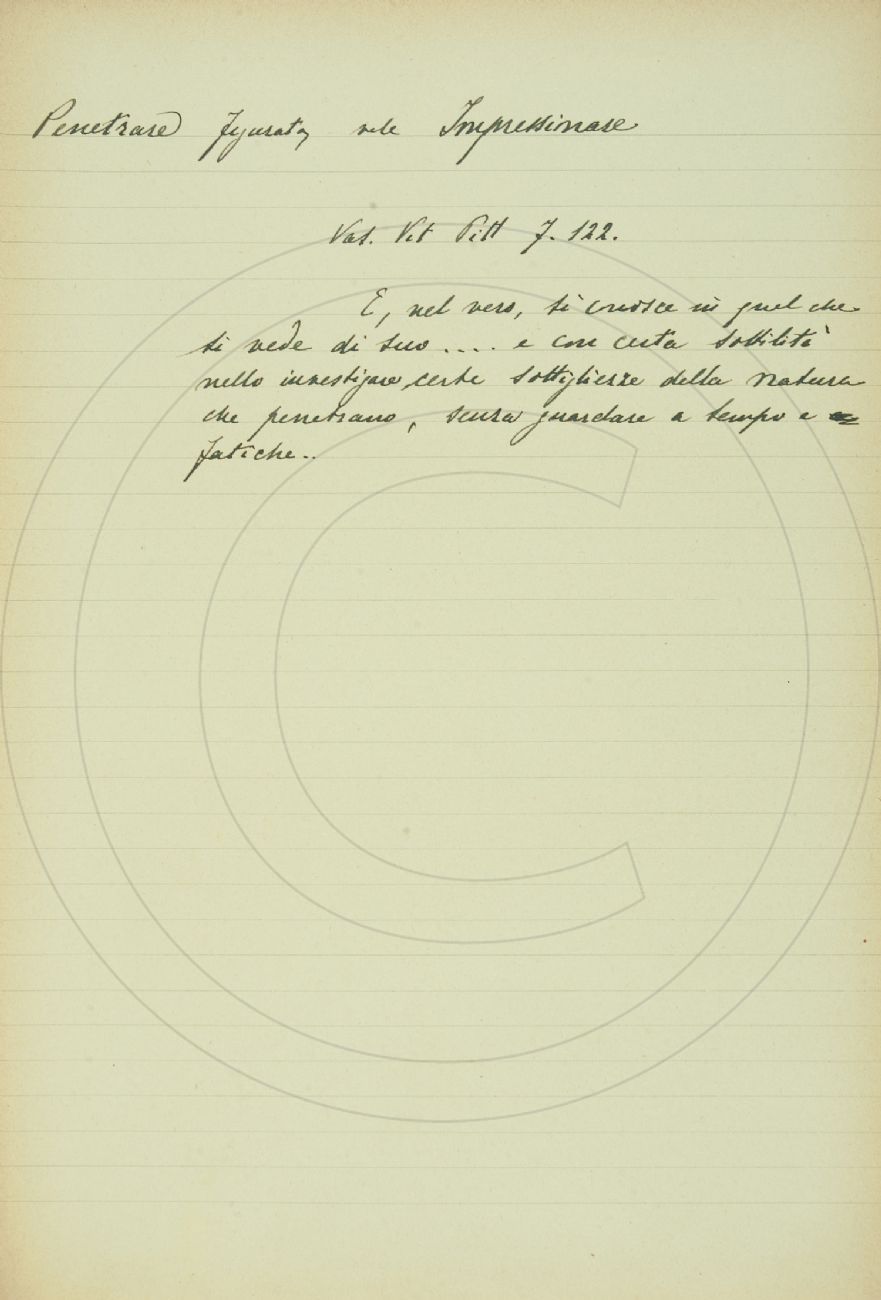 Penetrare figurato, vale Impressionare
Vas. Vit Pitt 7. 122.
E, nel vero, si conosce in quel che
si vede di suo .... e con certa sottilità
nello investigare, certe sottigliezze della natura
che penetrano, senza guardare a tempo e a
fatiche..